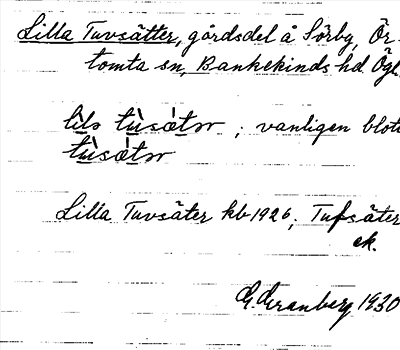 Lilla Tuvsätter, gårdsdel å Sörby, Ör-
tomta sn, Bankekinds hd Ögl.
lìlə tùsǻtər ; vanligen blott
tùsǻtər
Lilla Tuvsäter kb 1926; Tufsäter
ek.
G. Granberg 1930